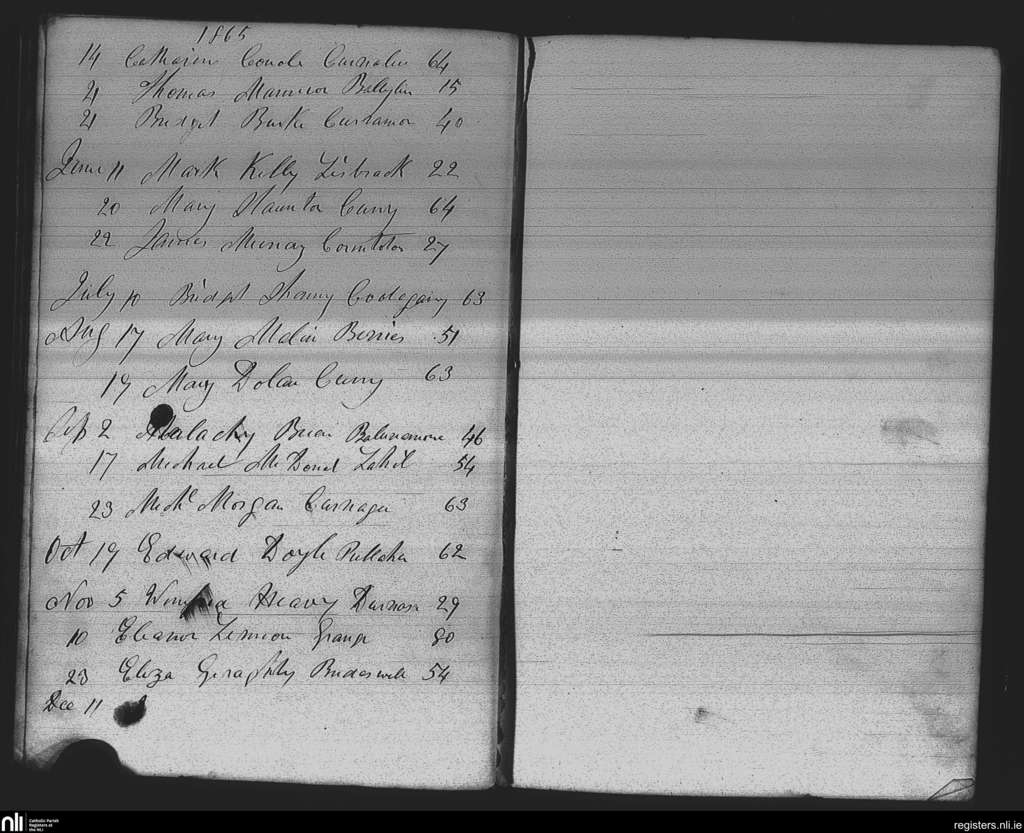 1865
14 Catharine Coyle Curnalee 64
21 Thomas Mannion Ballylin 15
21 Bridget Burke Curramore 40
June 11 Mark Kelly Lisbrock 22
20 Mary Staunton Curry 64
22 James Murray 27
July 10 Bridget 63
Aug 17 Mary Berries 51
19 Mary Dolan Curry 63
Sep 2 Malachy 46
17 Michael McDonel 54
23 Michl Morgan Carnagu 63
Oct 19 Edward Doyle 62
Nov 5 Heavy 29
10 Eleanor Lennon Grange 80
23 Eliza Geraghty Brideswell 54
Dec 11
nli Catholic Parish Registers at the NLI
registers.nli.ie